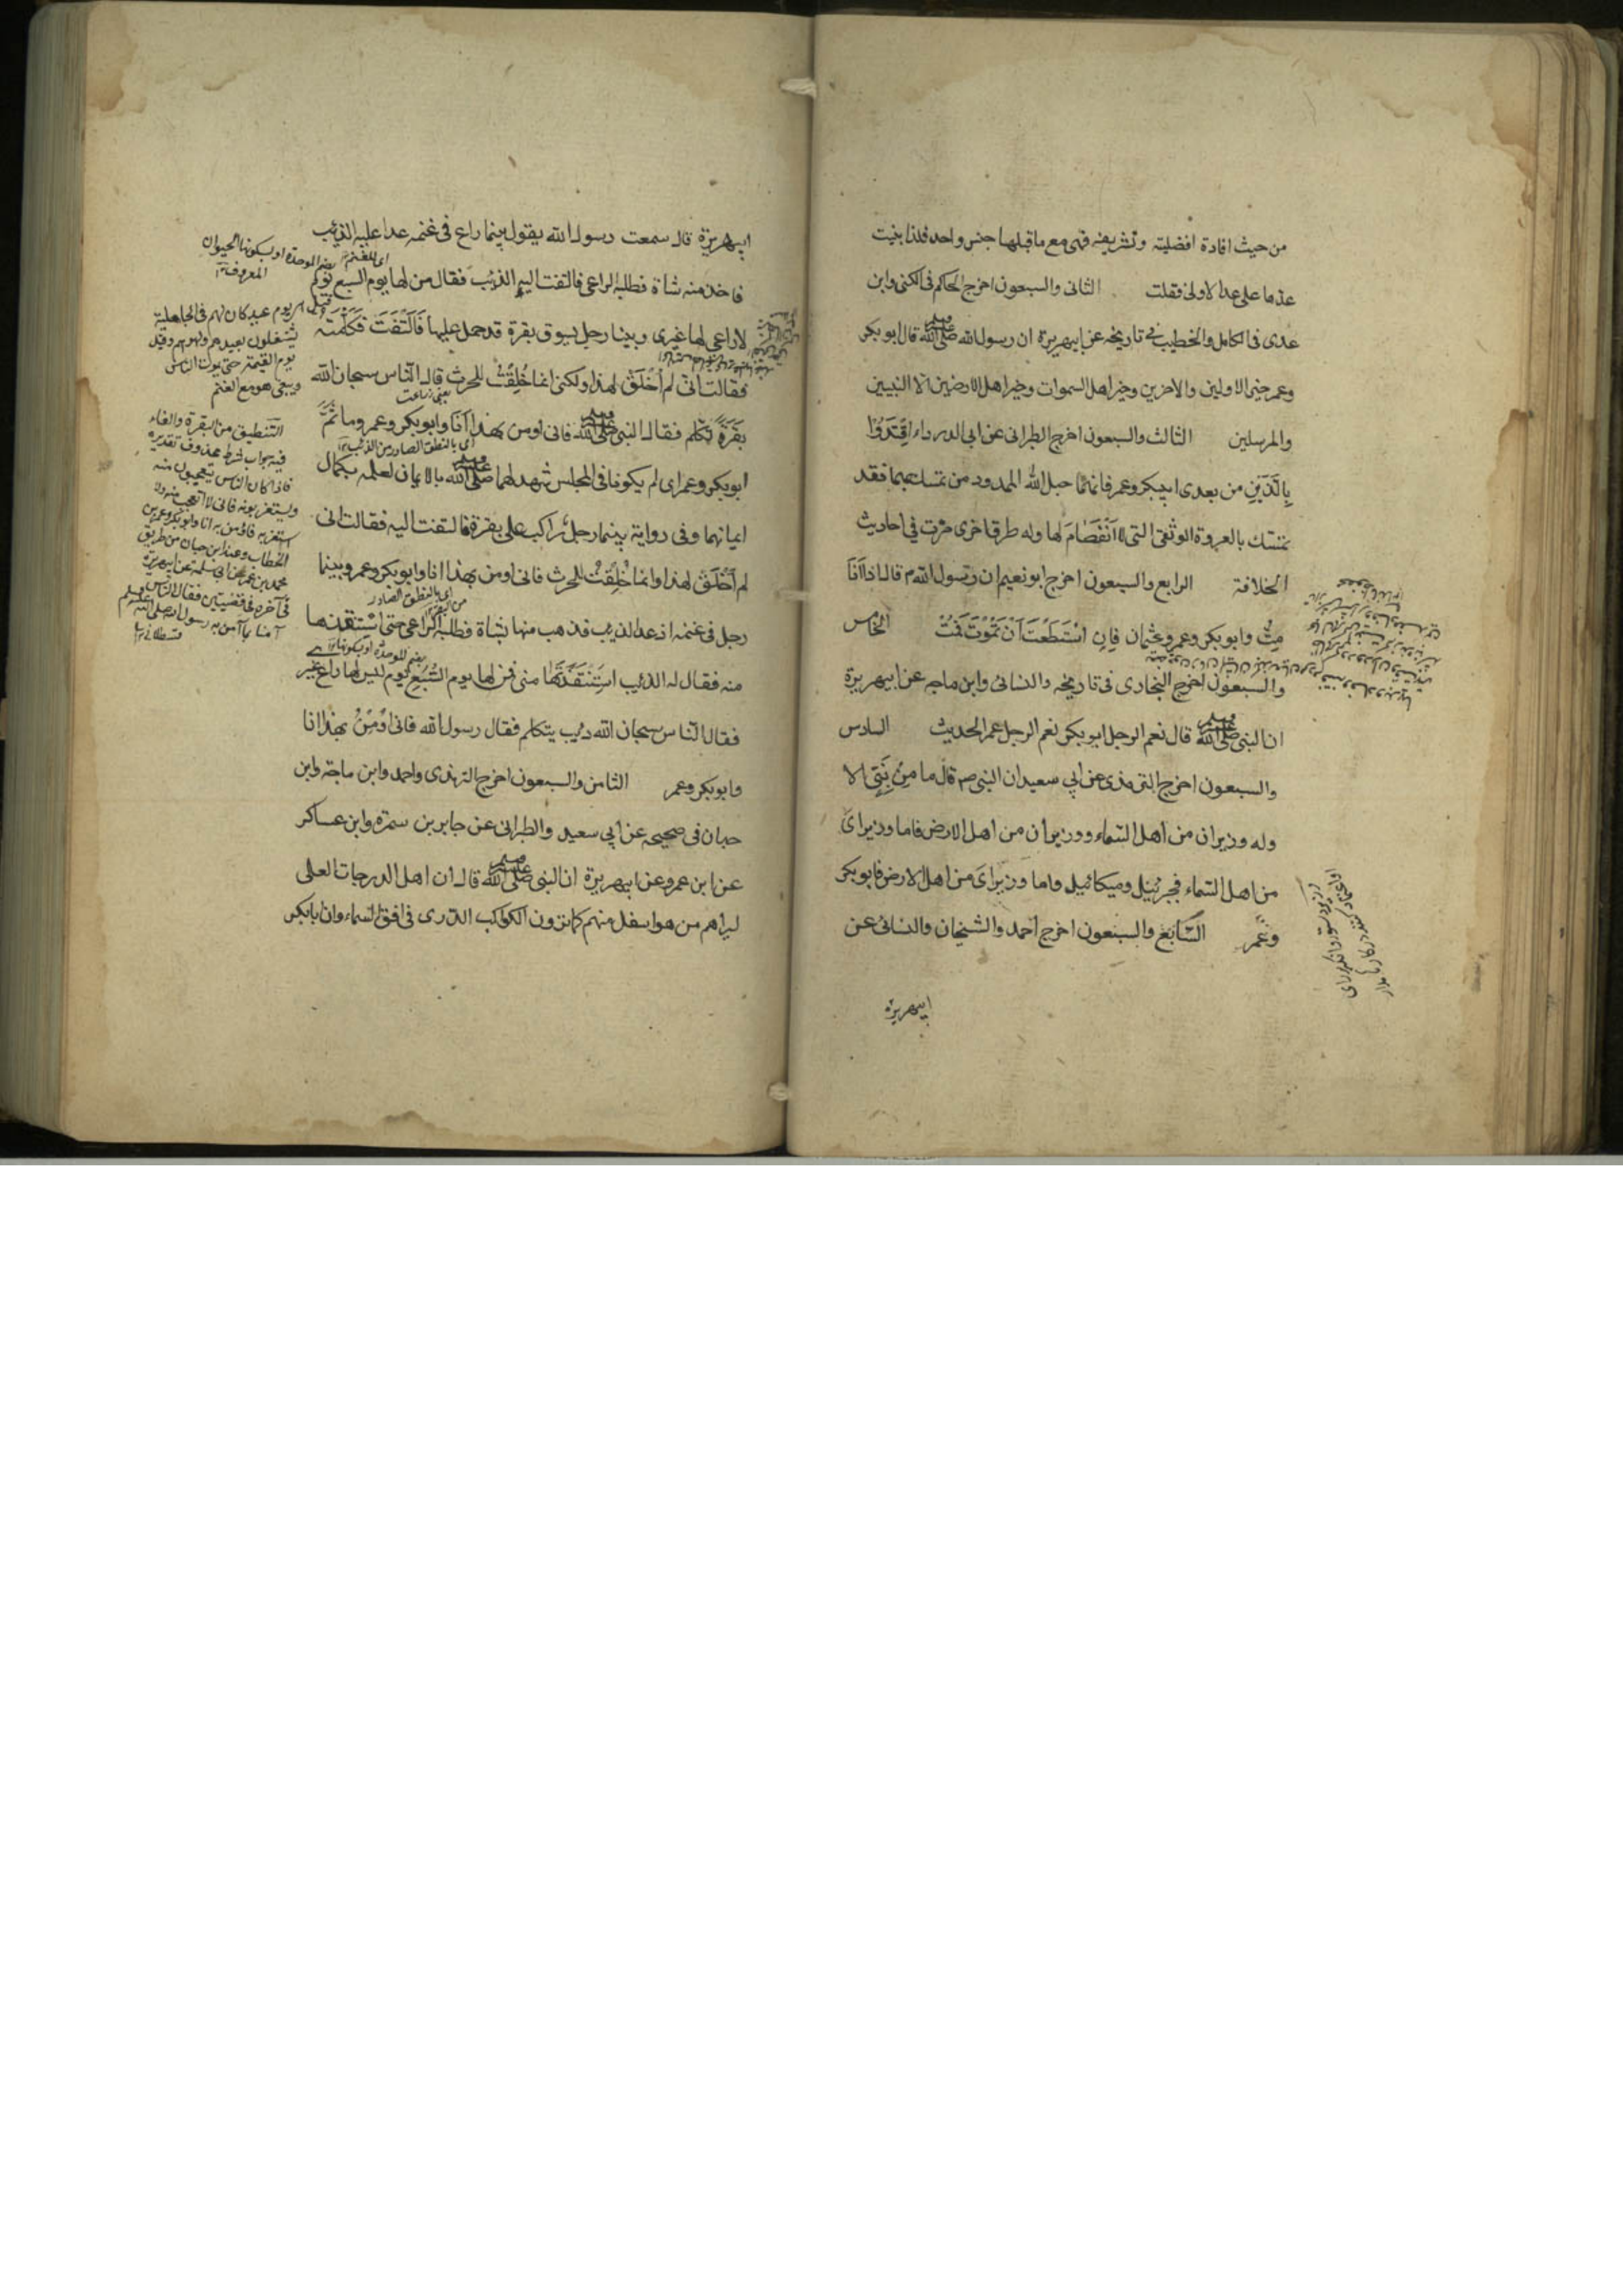 من حيث افادة افضليته وتشريفه فهى مع ما قبلها جنس واحد فلذا بنيت
عدها على عد الاولى فقلت الثانى والسبعون اخرج الحاكم فى الكنى وابن
عدى فى الكامل والخطيب فى تاريخه عن ابيهريرة ان رسول الله صلى الله عليه وسلم قال ابو بكر
وعمر خير الاولين والاخرين وخير اهل السموات وخير اهل الارضين الا النبيين
والمرسلين الثالث والسبعون اخرج الطبرانى عن ابى الدرداء اِقْتَدُوْا
بِالَّذَيْنِ من بعدى ابيبكر وعمر فانهما حبل الله الممدود من تمسك بهما فقد
تمسّك بالعروة الوثقى التى لا انْفِصَامَ لها وله طرق اخرى مرّت فى احاديث
الخلافة الرابع والسبعون اخرج ابو نعيم ان رسول الله م قال اذا اَنَا
مِتُّ وابو بكر وعمر وعثمان فَاِنِ اسْتَطَعْتَ اَنْ تَمُوْتَ فَمُتْ الخامس
والسبعون اخرج البخارى فى تاريخه والنسائى وابن ماجه عن ابيهريرة
ان النبى صلى الله عليه وسلم قال نعم الرجل ابو بكر نعم الرجل عمر الحديث السادس
والسبعون اخرج الترمذى عن ابى سعيد ان النبى صم قال ما مِنْ نَبِىٍّ الا
وله وزيران من اهل السّماء ووزيران من اهل الارض فاما وزيراىَ
من اهل السّماء فجبرئيل وميكائيل واما وزيراىَ من اهل الارض فابو بكر
وعُمر السّابع والسبعون اخرج احمد والشيخان والنسائى عن
ابيهريرة
ابيهريرة قال سمعت رسول الله يقول بينما راع فى غنمه عدا عليه الذئب
فاخذ منه شاة فطلبه الراعى فالتفت اليه الذئب فقال من لها يوم السبع يوم
لا راعى لها غيرى وبينا رجل يسوق بقرة قد حمل عليها فَالْتَفَتَتْ فَكَلَّمَتْهُ
فقالت انّى لم اُخْلَقْ لهذا ولكنى انما خُلِقْتُ للحرث قال النّاس سبحان الله
بَقَرَةٌ تكلم فقال النبى صلى الله عليه وسلم فانى اومن بهذا اَنَا وابو بكر وعمر وما ثَمَّ
ابو بكر وعمر اى لم يكونا فى المجلس شهد لهما صلى الله عليه وسلم بالايمان لعلمه بكمال
ايمانهما وفى رواية بينما رجل راكب على بقرة فالتفتت اليه فقالت انى
لم اُخْلَقْ لهذا وانما خُلِقْتُ للحرث فانى اومن بهذا انا وابو بكر وعمر وبينما
رجل فى غنمه اذ عدا الذيب فذهب منها بشاة فطلبه الراعى حتى استنقذها
منه فقال له الذئيب اسْتَنْقَذْتَهَا منى فمن لها يوم السَّبُعِ يوم ليس لها راع غير
فقال النّاس سبحان الله ذئب يتكلم فقال رسول الله فانى اُوْمِنُ بهذا انا
وابو بكر وعمر الثامن والسبعون اخرج الترمذى واحمد وابن ماجة وابن
حبان فى صحيحه عن ابى سعيد والطبرانى عن جابر بن سمرة وابن عساكر
عن ابن عمر وعن ابيهريرة ان النبى صلى الله عليه وسلم قال ان اهل الدرجات العلى
ليراهم من هو اسفل منهم كما ترون الكوكب الدرى فى افق السماء وان ابابكر
اى للغنم
بضم الموحدة او بسكونها الحيوان
المعروف
يوم عيد كان لهم فى الجاهلية
يشتغلون بعيدهم ولهوهم وقيل
يوم القيمة حتى يموت الناس
ويبقى هو مع الغنم
التنطيق من البقرة والفاء
فيه جواب شرط محذوف تقديره
فاذا كان الناس يتعجبون منه
ويستغربونه فانى لا اتعجب منه ولا
استغربه فاؤمن به انا وابو بكر وعمر بن
الخطاب وعند ابن حبان من طريق
محمد بن عمرو عن ابى سلمة عن ابيهريرة
فى آخره فى قضيتين فقال الناس
آمنا بما آمن به رسول الله صلى الله عليه وسلم
قسطلانى
اى بالنطق الصادر من الذئب
اى بالنطق الصادر
من البقرة
بضم الموحدة او بسكونها